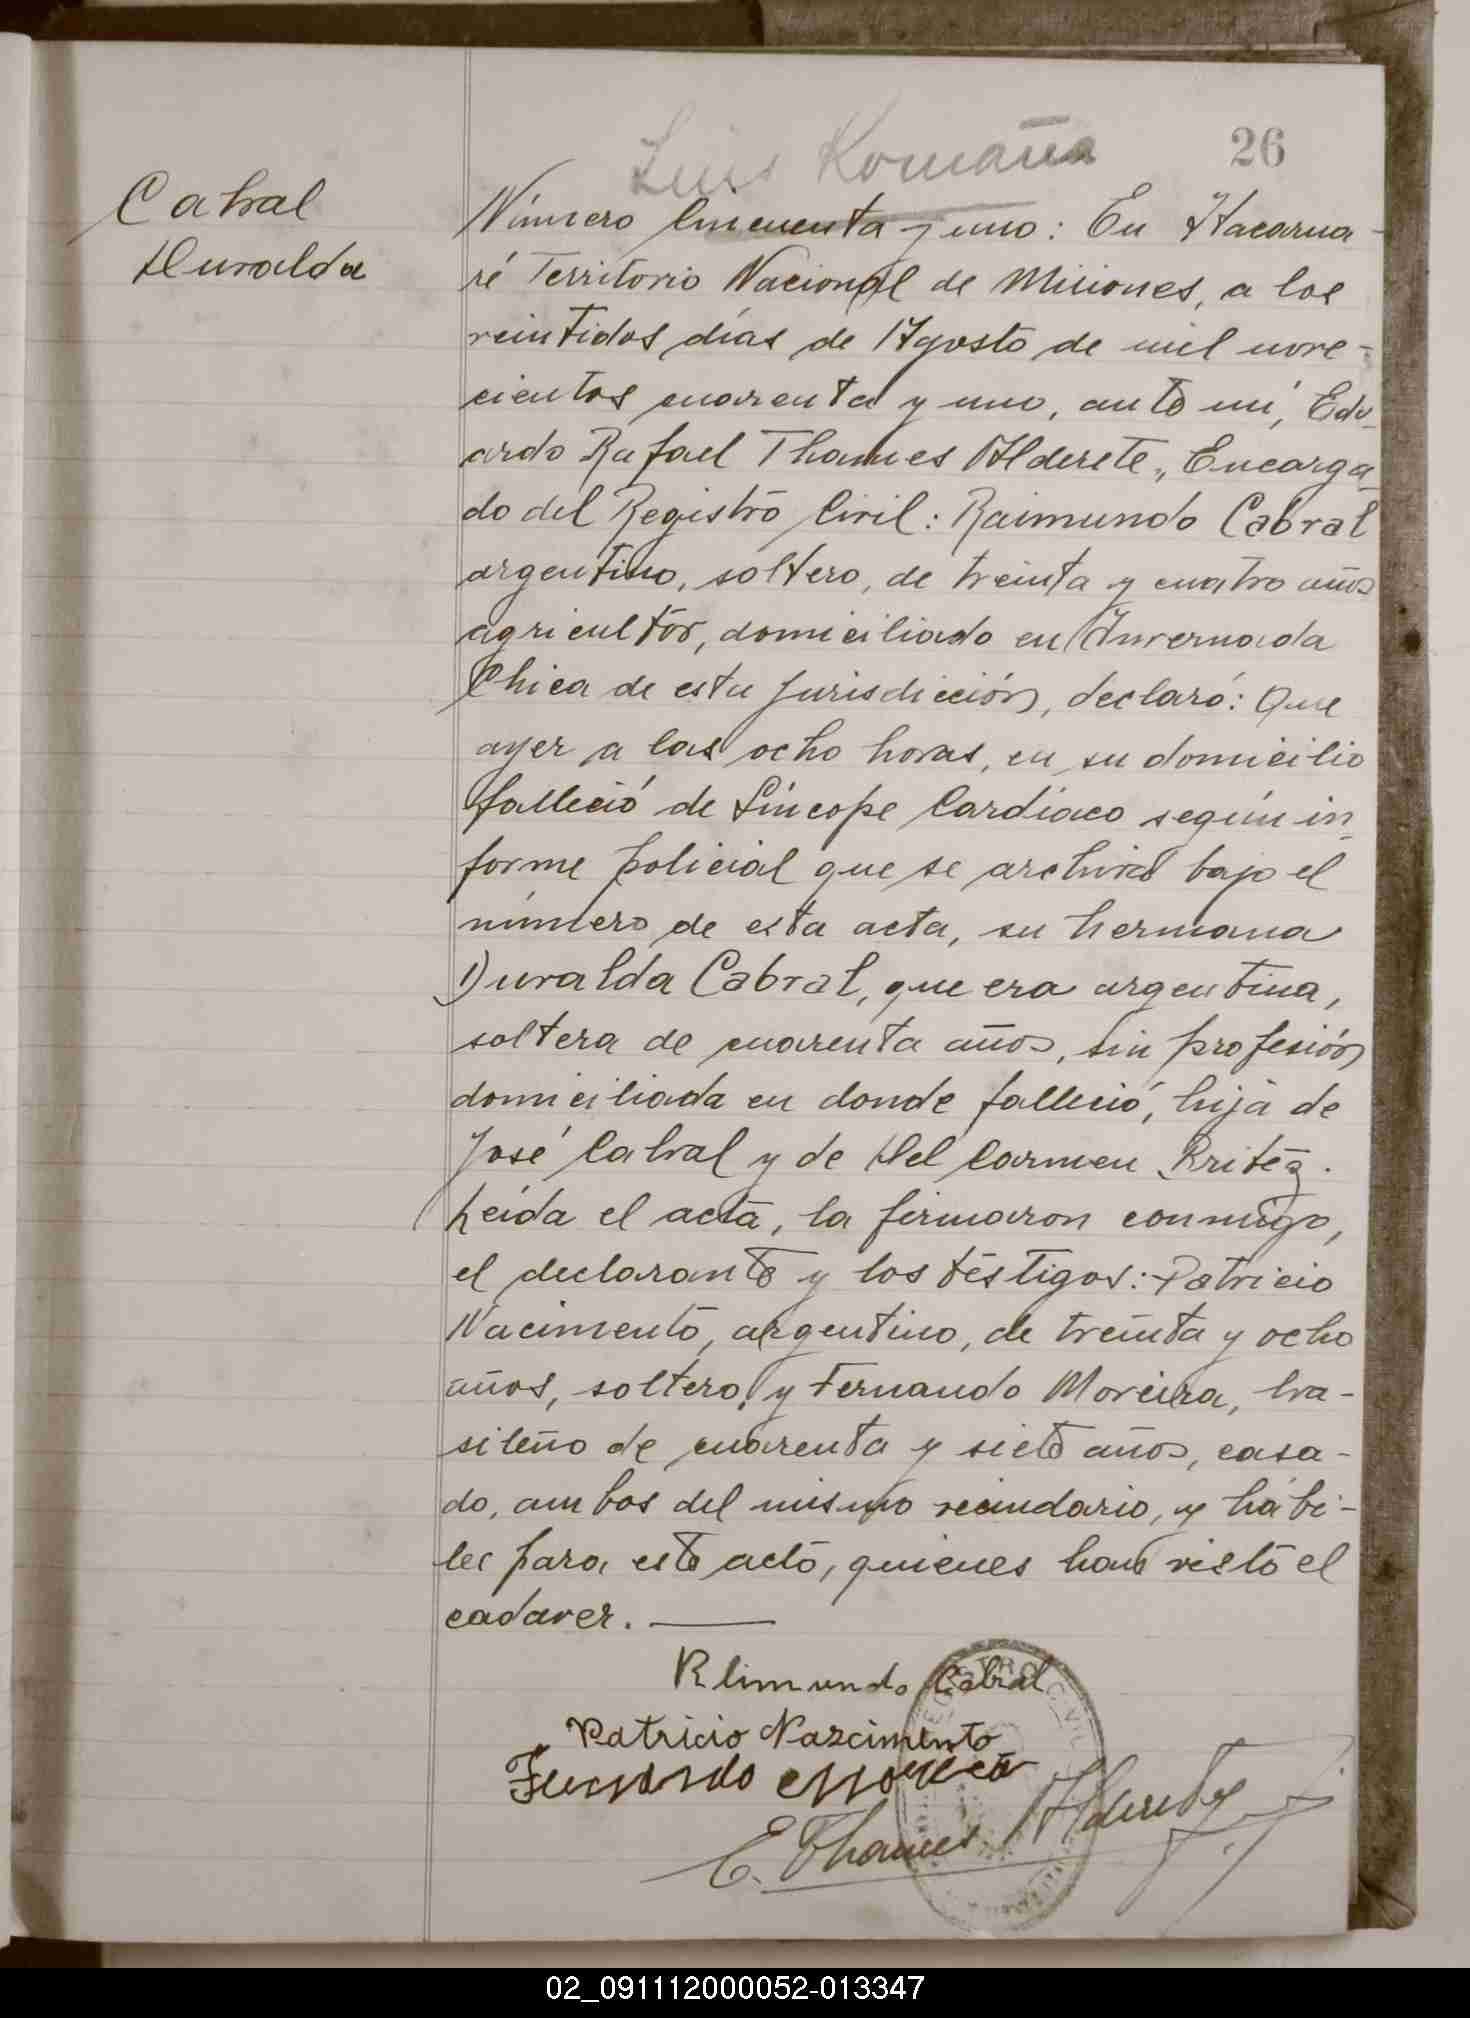 Luis Romaña
26
Cabral
Duralda
Número Cincuenta y uno: En Itacarua-
ré Territorio Nacional de Misiones, a los
veintidos días de Agosto de mil nove-
cientos cuarenta y uno, ante mí, Edu-
ardo Rafael Thames Alderete, Encarga-
do del Registro Civil: Raimundo Cabral
argentino, soltero, de treinta y cuatro años
agricultor, domiciliado en Invernada
Chica de esta jurisdicción, declaró: Que
ayer a las ocho horas, en su domicilio
falleció de Síncope Cardíaco según in-
forme policial que se archiva bajo el
número de esta acta, su hermana
Duralda Cabral, que era argentina,
soltera de cuarenta años, sin profesión
domiciliada en donde falleció, hija de
José Cabral y de Del Carmen Britez.
Leída el acta, la firmaron conmigo,
el declarante y los testigos: Patricio
Nacimento, argentino, de treinta y ocho
años, soltero, y Fernando Moreira, bra-
sileño de cuarenta y siete años, casa-
do, ambos del mismo vecindario, y hábi-
les para este acto, quienes han visto el
cadaver.
Rlimundo Cabral
Patricio Nazcimento
Fernando Moreira
E. Thames Alderete
02_091112000052-013347